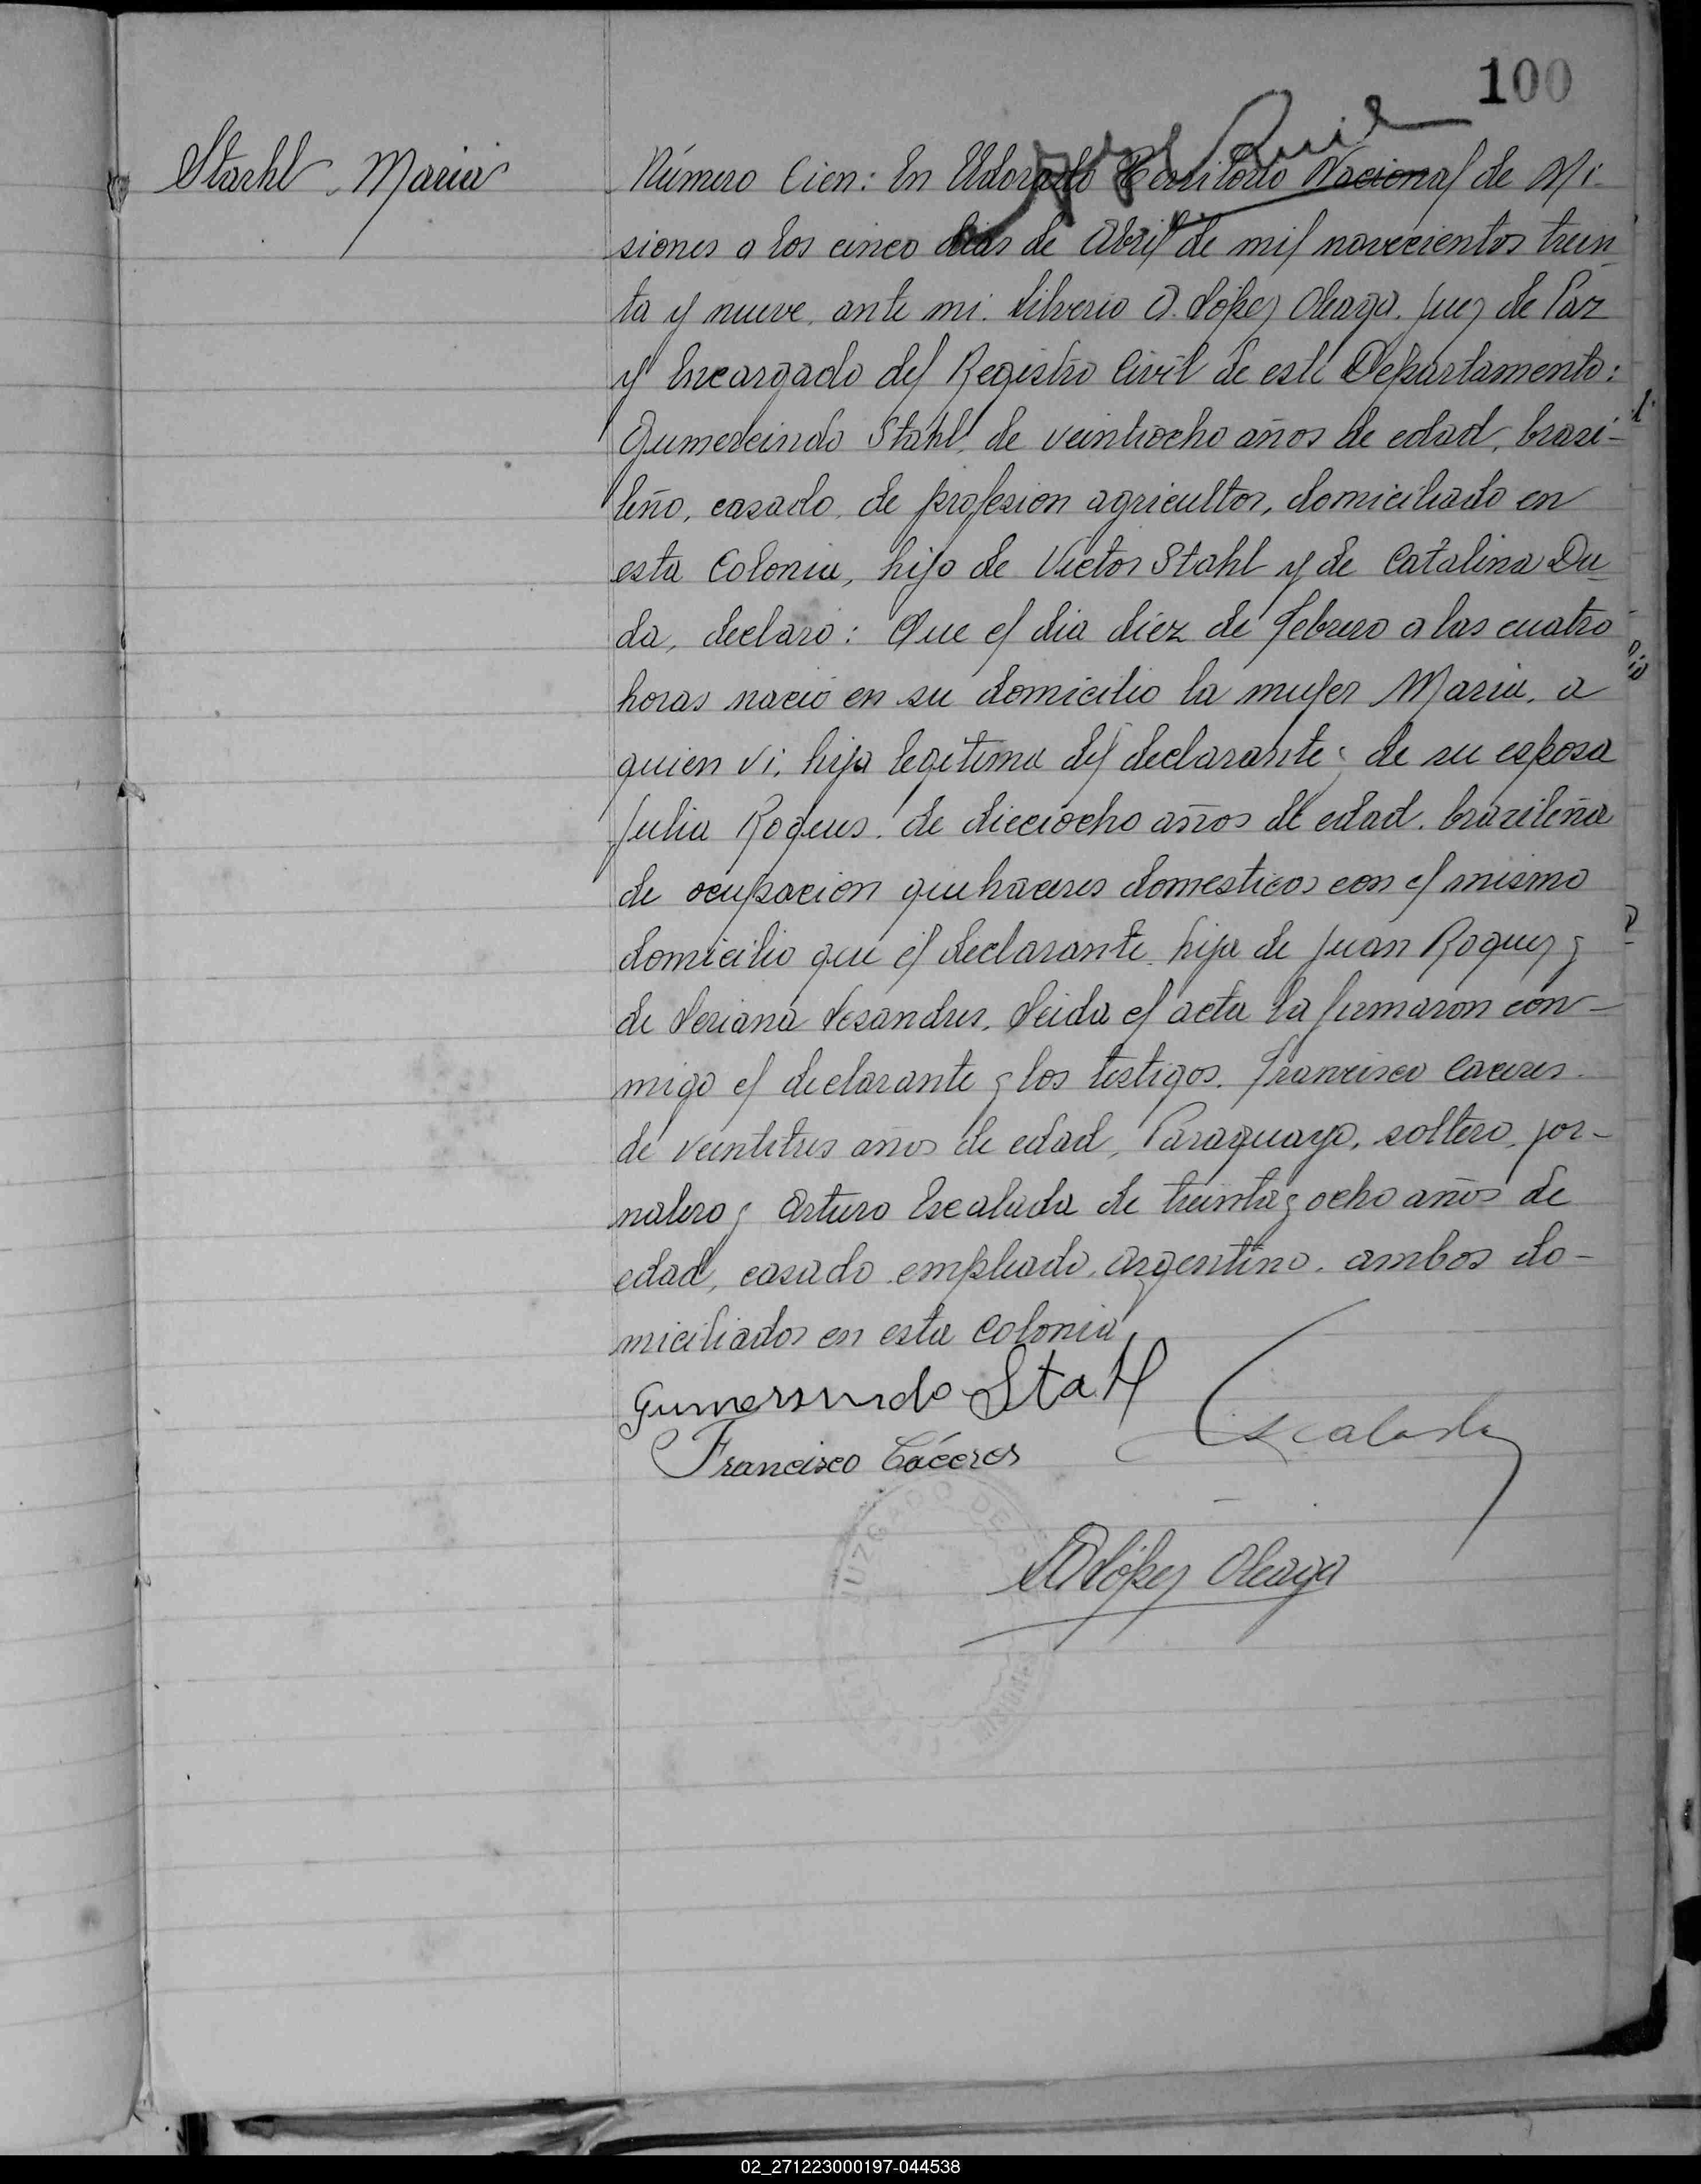 100
Starhl Maria
Número Cien: En Eldorado Territorio Nacional de Mi-
siones a los cinco dias de Abril de mil novecientos trein
ta y nueve, ante mi. Silverio A. López Oleaga. Juez de Paz
y Encargado del Registro Civil de este Departamento:
Gumercindo Stahl, de veintiocho años de edad, brasi-
leño, casado, de profesion agricultor, domiciliado en
esta Colonia, hijo de Victor Stahl y de Catalina Du
da, declaro: Que el dia diez de febrero a las cuatro
horas nació en su domicilio la mujer Maria, a
quien vi, hija legitima del declarante y de su esposa
Julia Roques. de dieciocho años de edad. brazileña
de ocupacion quehaceres domesticos con el mismo
domicilio que el declarante, hija de Juan Roquez y
de Lesandres. Leida el acta la firmaron con-
migo el declarante y los testigos. Francisco Caceres.
de veintitres años de edad, Paraguayo, soltero, jor-
nalero y Arturo Escalada de treinta y ocho años de
edad, casado empleado, argentino. ambos do-
miciliados en esta Colonia.
Gumersindo Stahl
Escalada
Francisco Cáceres
JUZGADO DE
SA López Oleaga
02_271223000197-044538